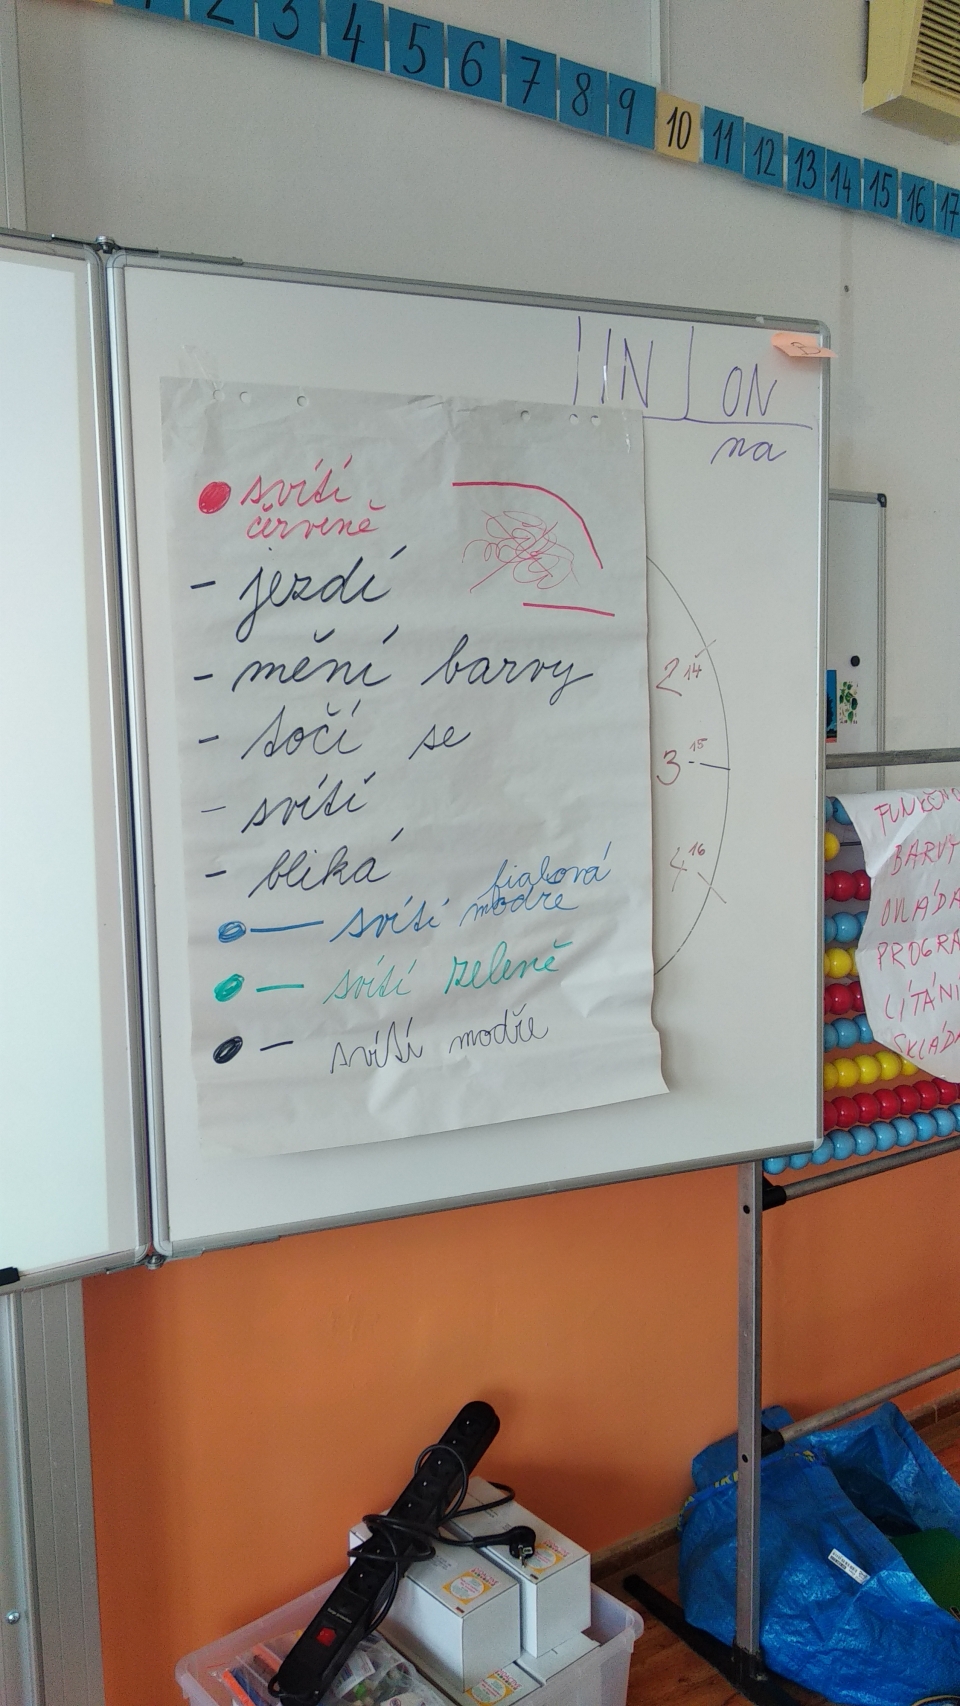 1 2 3 4 5 6 7 8 9 10 11 12 13 14 15 16 17
ON
na
svítí
červeně
- jezdí
- mění barvy
- točí se
- svítí
- bliká
fialová
— svítí modře
— svítí zeleně
— svítí modře
2 14
3 15
4 16
BARVY